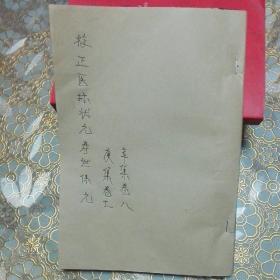 校正医林状元寿世保元
庚集卷七
辛集卷八